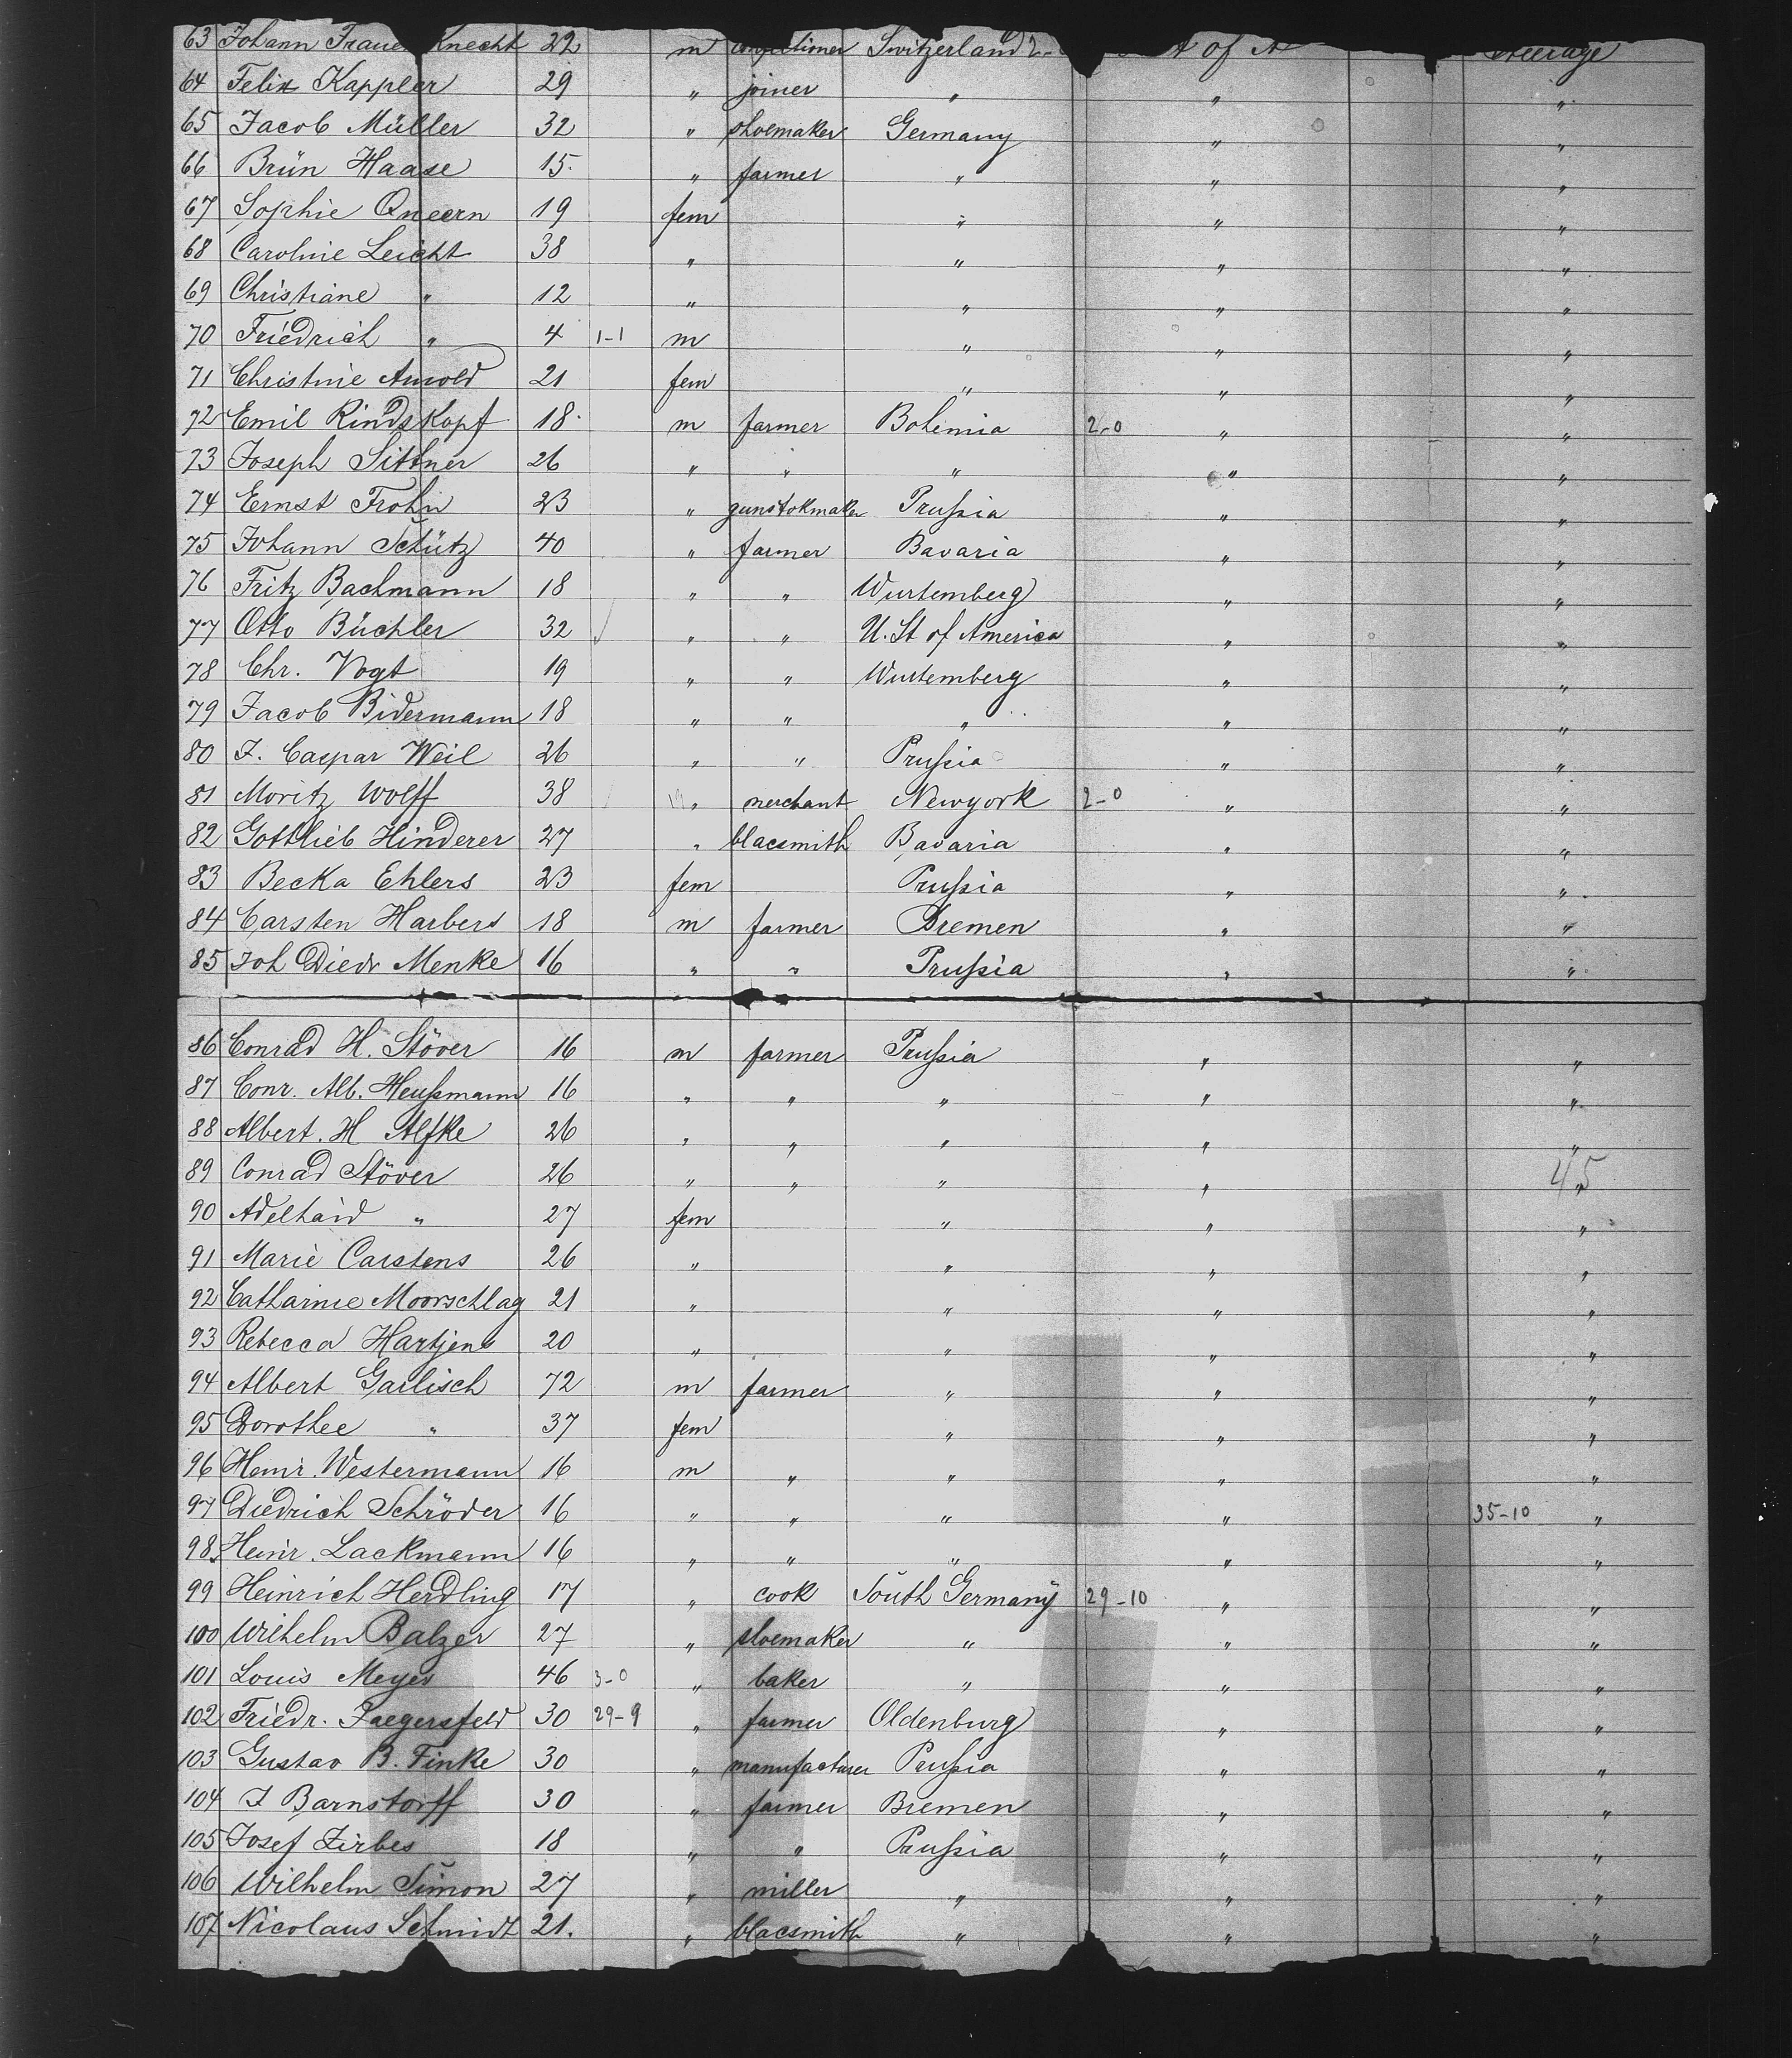 63 Johann Frauenknecht 22 m confectioner Switzerland of Steerage
64 Felix Kappler 29 " joiner " " "
65 Jacob Müller 32 " shoemaker Germany " "
66 Brün Haase 15. " farmer " " "
67 Sophie 19 fem " " "
68 Caroline Leicht 38 " " " "
69 Christiane " 12 " " " "
70 Friedrich " 4 1-1 m " " "
71 Christine Arnold 21 fem " " "
72 Emil Rindskopf 18. m farmer Bohemia 2-0 " "
73 Joseph Sittner 26 " " " " "
74 Ernst Frohn 23 " gunstokmaker Prußia " "
75 Johann Schütz 40 " farmer Bavaria " "
76 Fritz Bachmann 18 " " Wurtemberg " "
77 Otto Büchler 32 " " U. St of America " "
78 Chr. Vogt 19 " " Wurtemberg " "
79 Jacob Bidermann 18 " " " " "
80 J. Caspar Weil 26 " " Prußia " "
81 Moritz Wolff 38 " merchant Newyork 2-0 " "
82 Gottlieb Hinderer 27 " blacsmith Bavaria " "
83 Becka Ehlers 23 fem Prußia " "
84 Carsten Harbers 18 m farmer Bremen " "
85 Joh Diedr Menke 16 " " Prußia " "
86 Conrad H. Stöver 16 m farmer Prußia " "
87 Conr. Alb. Heußmann 16 " " " " "
88 Albert. H Alfke 26 " " " " "
89 Conrad Stöver 26 " " " " " 45
90 Adelhaid " 27 fem " " "
91 Marie Carstens 26 " " " "
92 Catharine Moorschlag 21 " " " "
93 Rebecca Hartjens 20 " " " "
94 Albert Garlisch 72 m farmer " " "
95 Dorothee " 37 fem " " "
96 Heinr. Westermann 16 m " " " "
97 Diedrich Schröder 16 " " " " 35-10 "
98 Heinr. Lackmann 16 " " " " "
99 Heinrich Herdling 17 " cook South Germany 29-10 " "
100 Wilhelm Balzer 27 " shoemaker " " "
101 Louis Meyer 46 3-0 " baker " " "
102 Friedr. Jaegersfeld 30 29-9 " farmer Oldenburg " "
103 Gustav B. Finke 30 " manufacturer Prußia " "
104 J Barnstorff 30 " farmer Bremen " "
105 Josef Zirbes 18 " " Prußia " "
106 Wilhelm Simon 27 " miller " " "
107 Nicolaus Schmidt 21. " blacsmith " " "